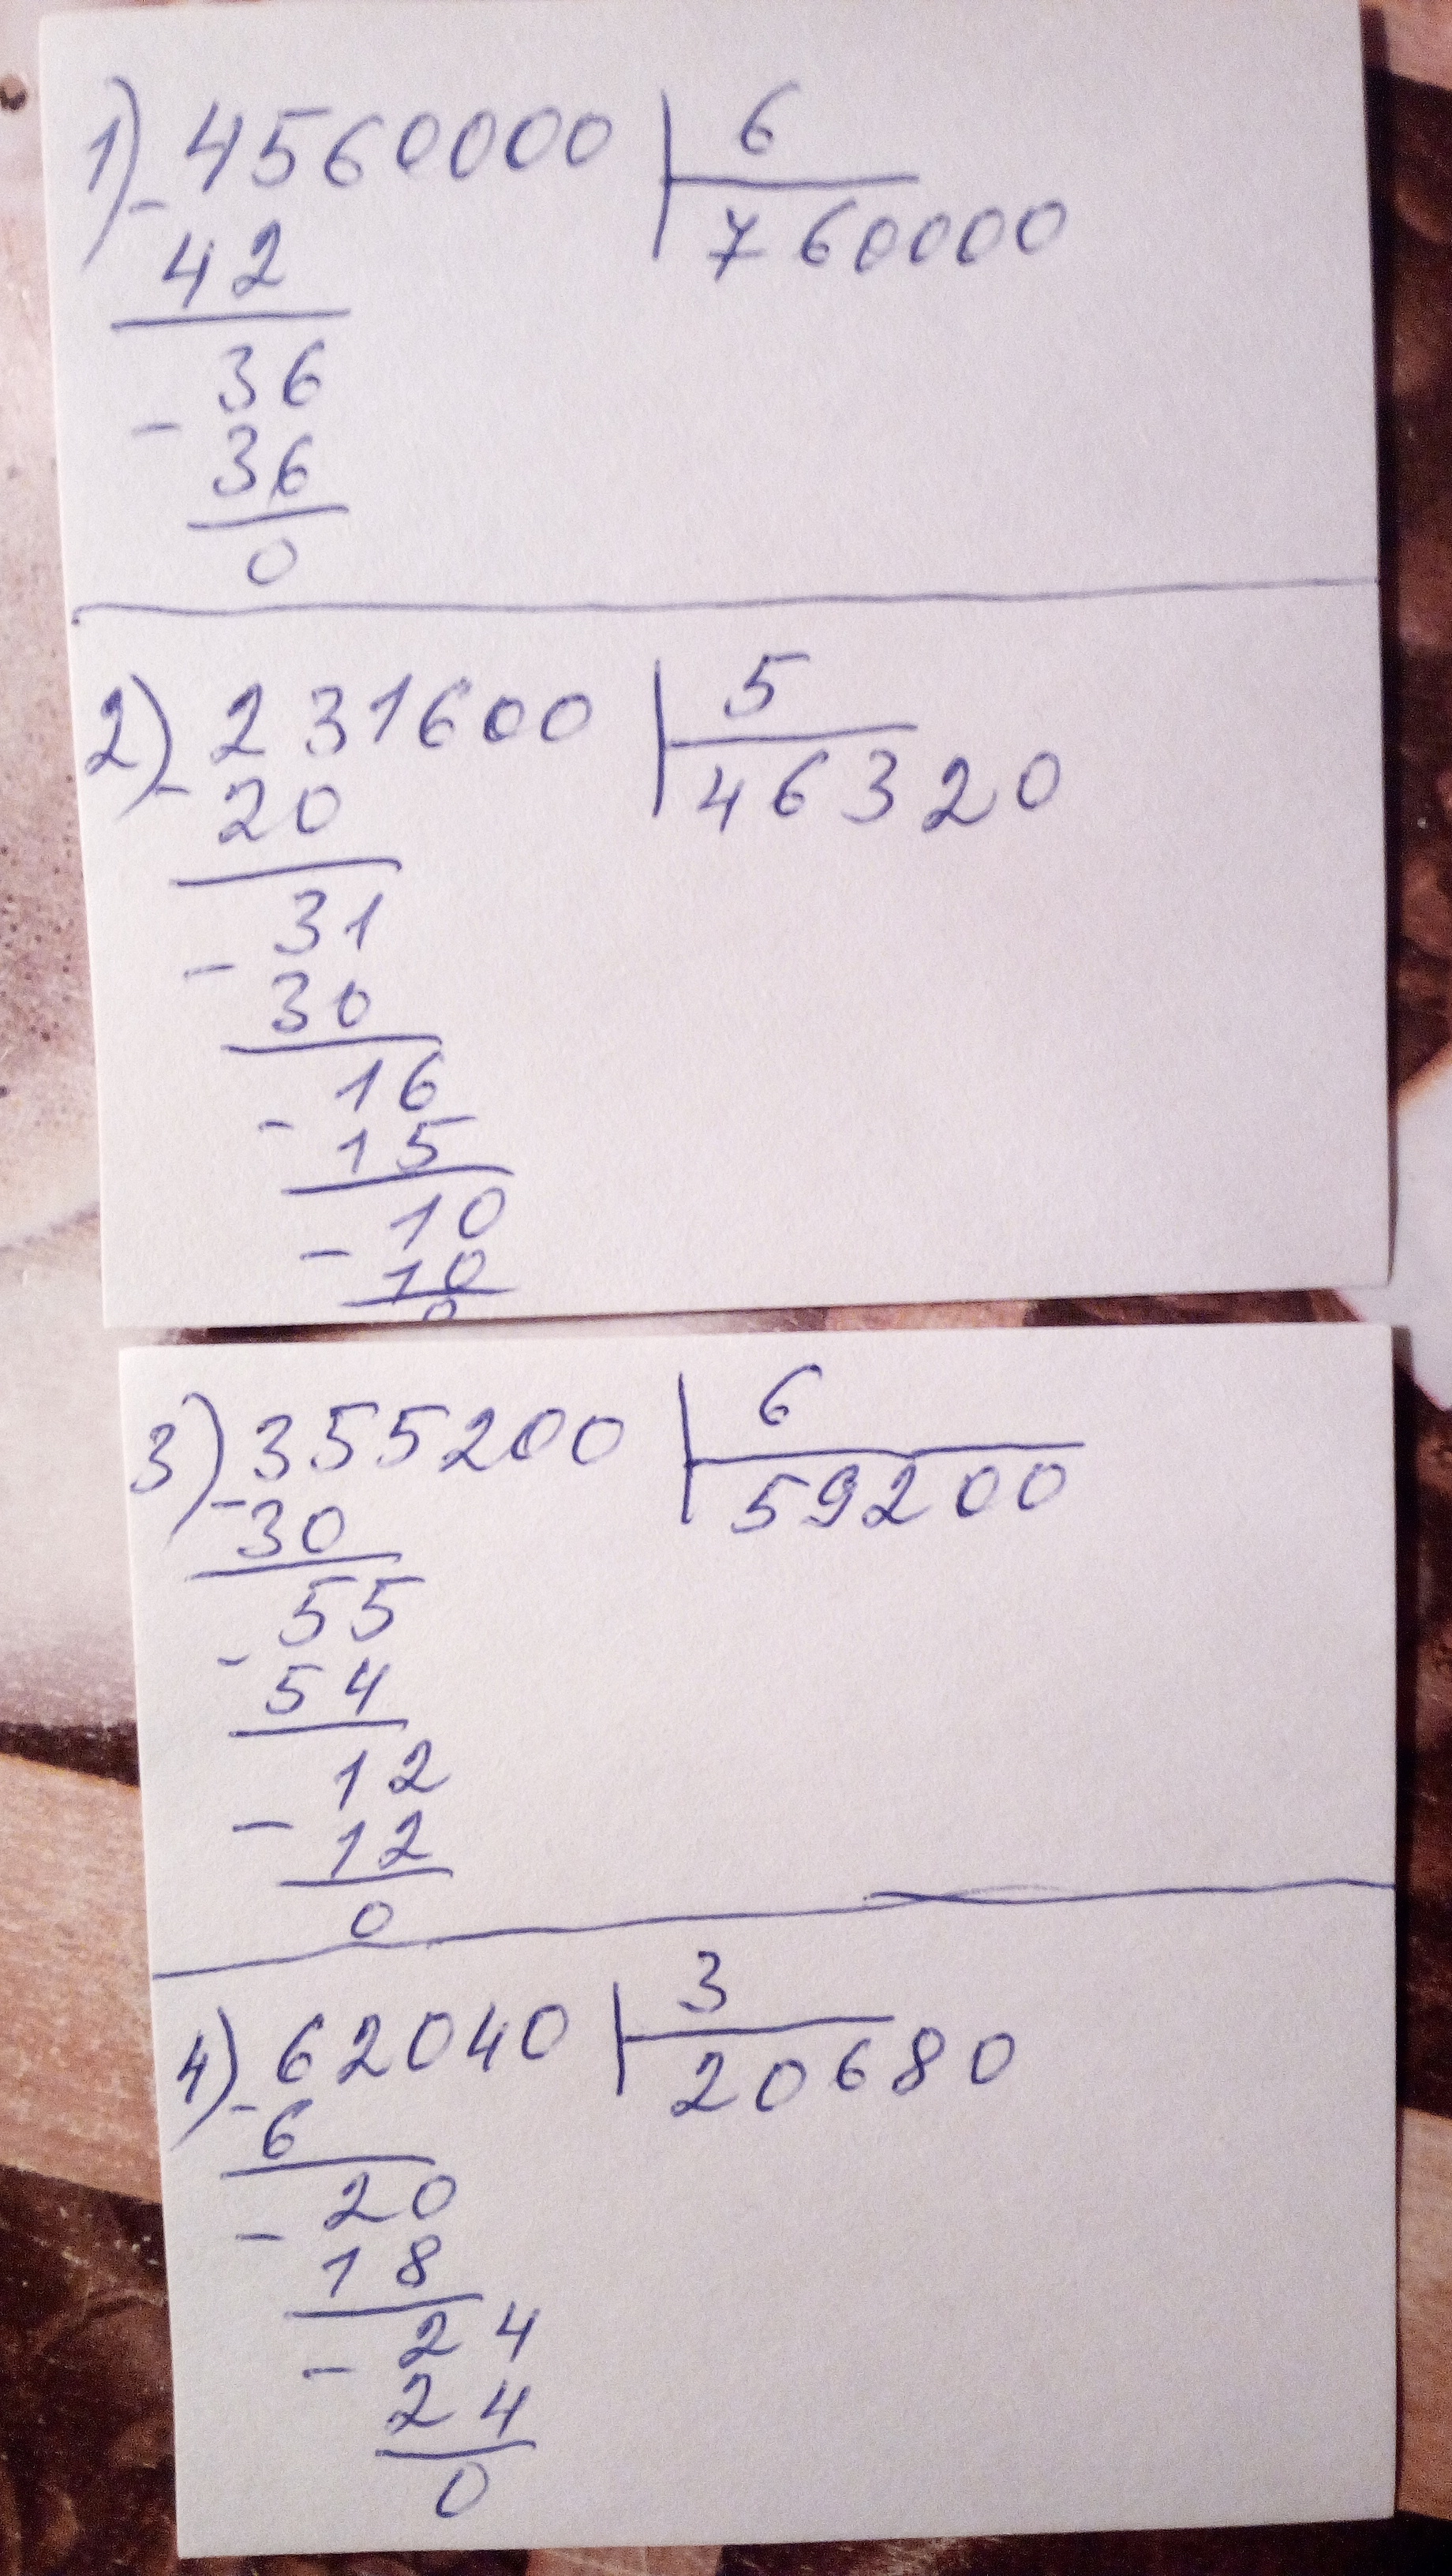 1) - 4560000 | 6
42 760000
36
- 36
0
2) - 231600 | 5
20 46320
31
- 30
16
- 15
10
- 10
0
3) - 355200 | 6
30 59200
55
- 54
12
- 12
0
4) - 62040 | 3
6 20680
20
- 18
24
- 24
0